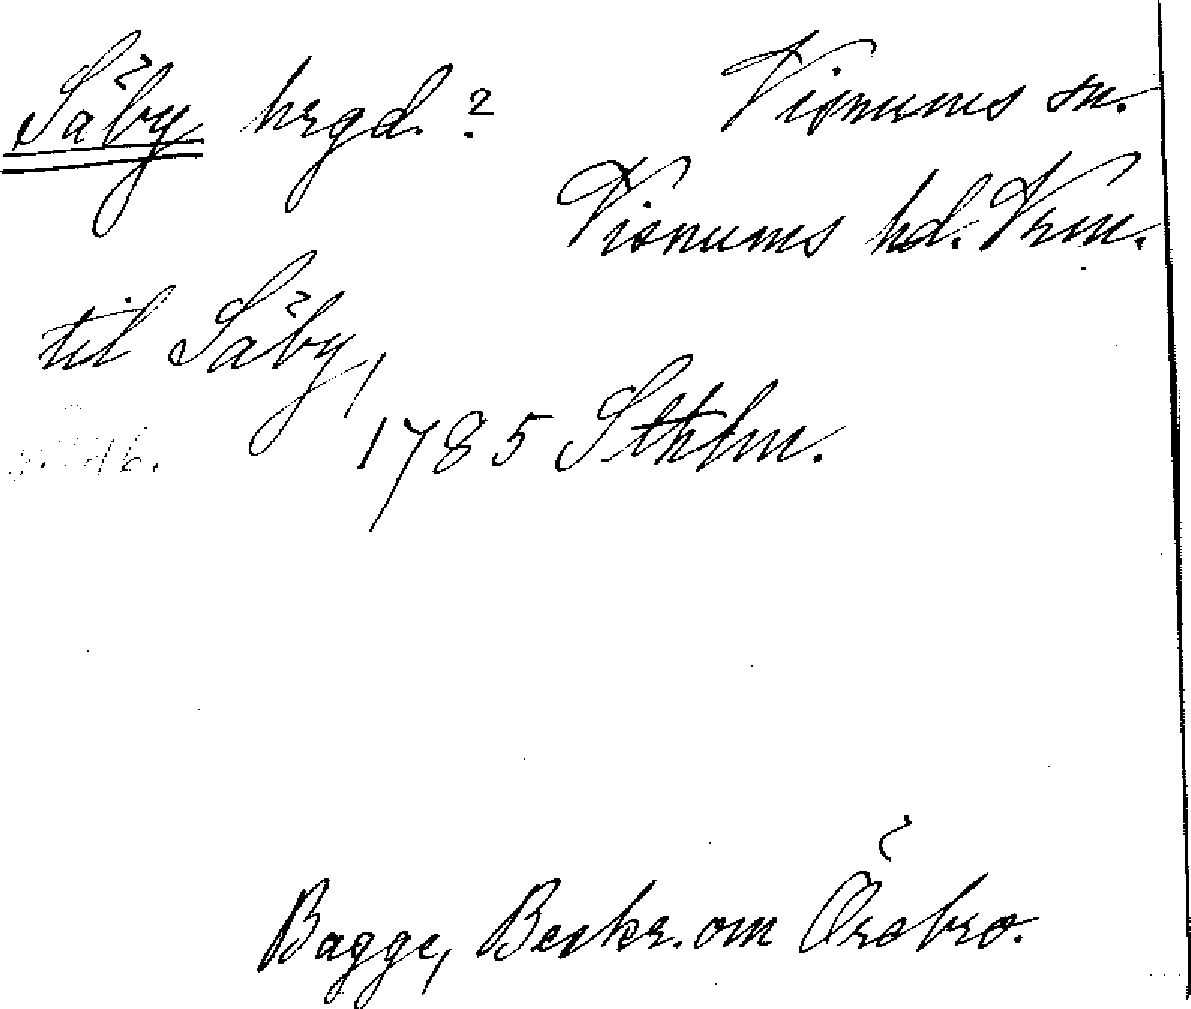 Säby hrgd.? Visnums sn.
Visnums hd. Vrm.
til Säby,
1785 Sthlm.
Bagge, Beskr. om Örebro.